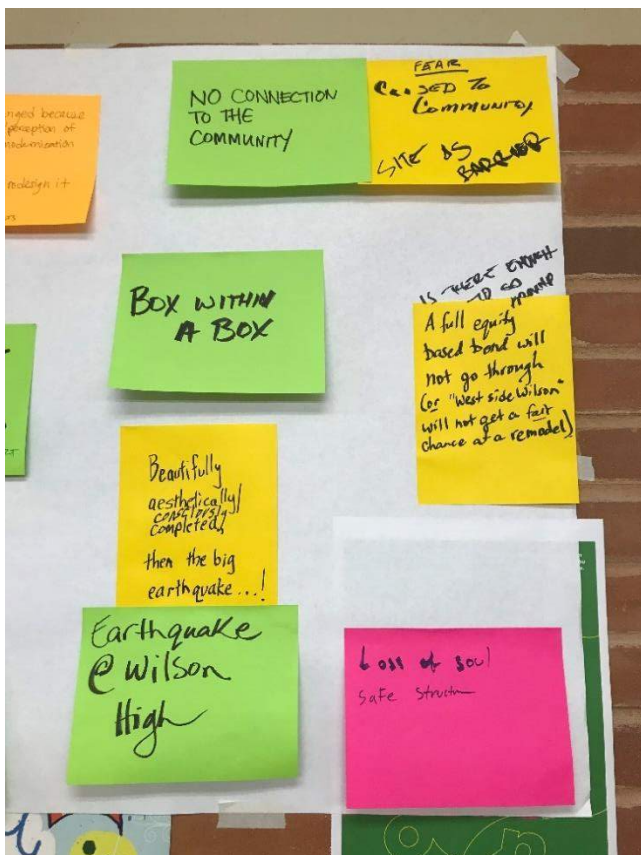 nged because
perception of
modernization
redesign it
NO CONNECTION
TO THE
COMMUNITY
FEAR
TO
COMMUNITY
SITE IS
BOX WITHIN
A BOX
IS THERE ENOUGH
TO GO
A full equity
based bond will
not go through
(or "West side Wilson"
will not get a fair
chance at a remodel)
Beautifully
aesthetically/
completed,
then the big
earthquake...!
Earthquake
@ Wilson
High
Loss of soul
Safe